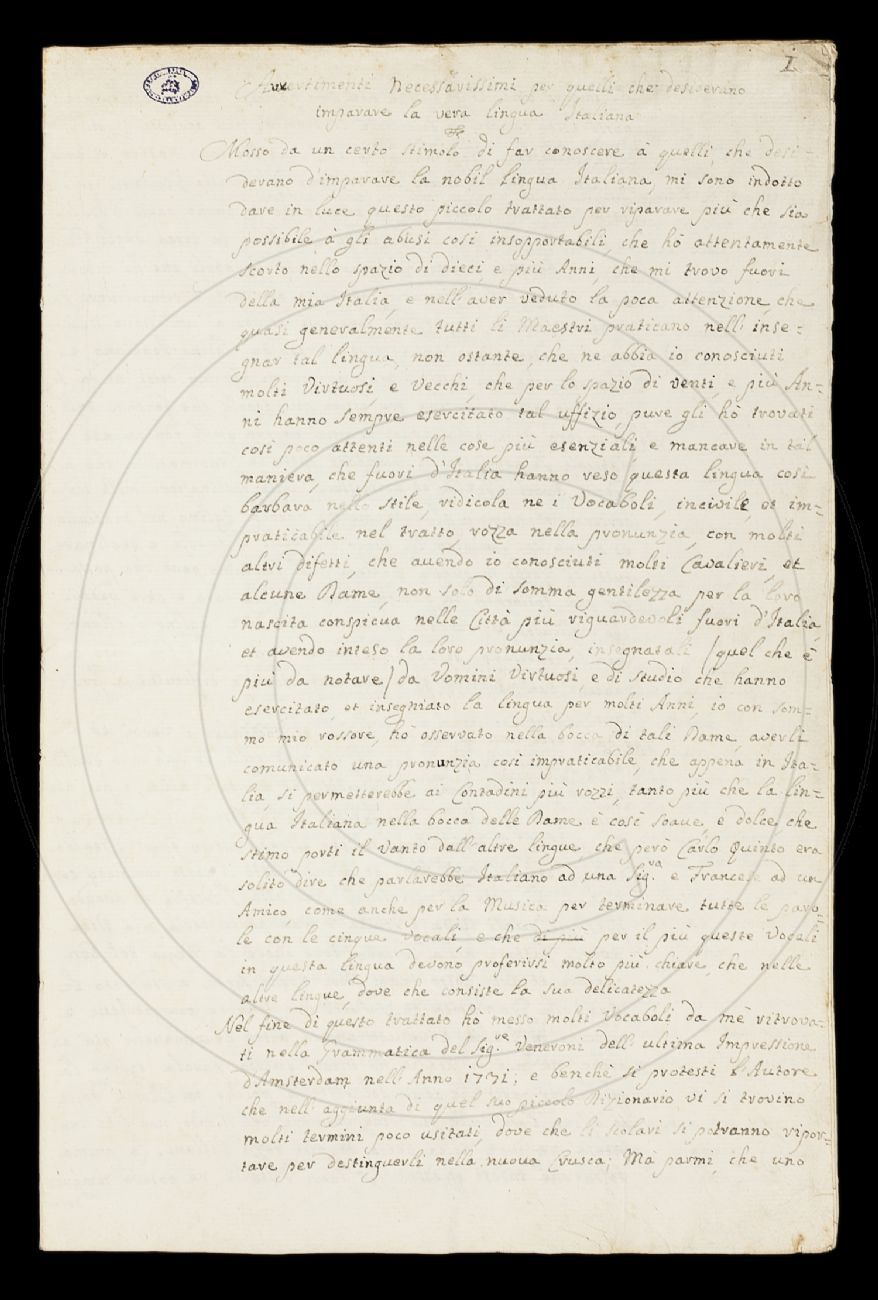 1
Avvertimenti Necessarissimi per quelli che desiderano
imparare la vera lingua Italiana
Mosso da un certo stimolo di far conoscere à quelli, che desi-
derano d'imparare la nobil lingua Italiana, mi sono indotto
dare in luce questo piccolo trattato per riparare più che sia
possibile à gli abusi così insopportabili, che hò attentamente
scorto nello spazio di dieci, e più Anni, che mi trovo fuori
della mia Italia, e nell'aver veduto la poca attenzione, che
quasi generalmente tutti li Maestri praticano nell'inse=
gnar tal lingua, non ostante, che ne abbia io conosciuti
molti Virtuosi, e Vecchi, che per lo spazio di venti, e più An=
ni hanno sempre esercitato tal uffizio, pure gli hò trovati
così poco attenti nelle cose più esenziali, e mancare in tal
maniera, che fuori d'Italia hanno reso questa lingua così
barbara nello stile, ridicola ne i Vocaboli, incivile, et im=
praticabile nel tratto, rozza nella pronunzia, con molti
altri difetti, che avendo io conosciuti molti Cavalieri, et
alcune Dame, non solo di somma gentilezza per la loro
nascita conspicua nelle Città più riguardevoli fuori d'Italia,
et avendo inteso la loro pronunzia, insegnatali /quel che è
più da notare/ da Vomini Virtuosi, e di studio che hanno
esercitato, et insegniato la lingua per molti Anni, io con som=
mo mio rossore, hò osservato nella bocca di tali Dame, averli
comunicato una pronunzia così impraticabile, che appena in Ita=
lia, si permetterebbe ai Contadini più rozzi, tanto più che la lin=
gua Italiana nella bocca delle Dame è così soave, e dolce che
stimo porti il vanto dall'altre lingue, che però Carlo Quinto era
solito dire che parlarebbe Italiano ad una Sig.ra e Francese ad un
Amico, come anche per la Musica per terminare tutte le paro=
le con le cinque vocali, e che di più per il più queste Vocali
in questa lingua devono proferirsi molto più chiare, che nelle
altre lingue, dove che consiste la sua delicatezza
Nel fine di questo trattato hò messo molti Vocaboli da mè ritrova=
ti nella Grammatica del Sig.re Veneroni dell'ultima Impressione
d'Amsterdam nell'Anno 1731; e benchè si protesti l'Autore
che nell'aggiunta di quel suo piccolo Dizionario vi si trovino
molti termini poco usitati, dove che li scolari si potranno ripor=
tare per destinguerli nella nuova Crusca; Mà parmi, che uno